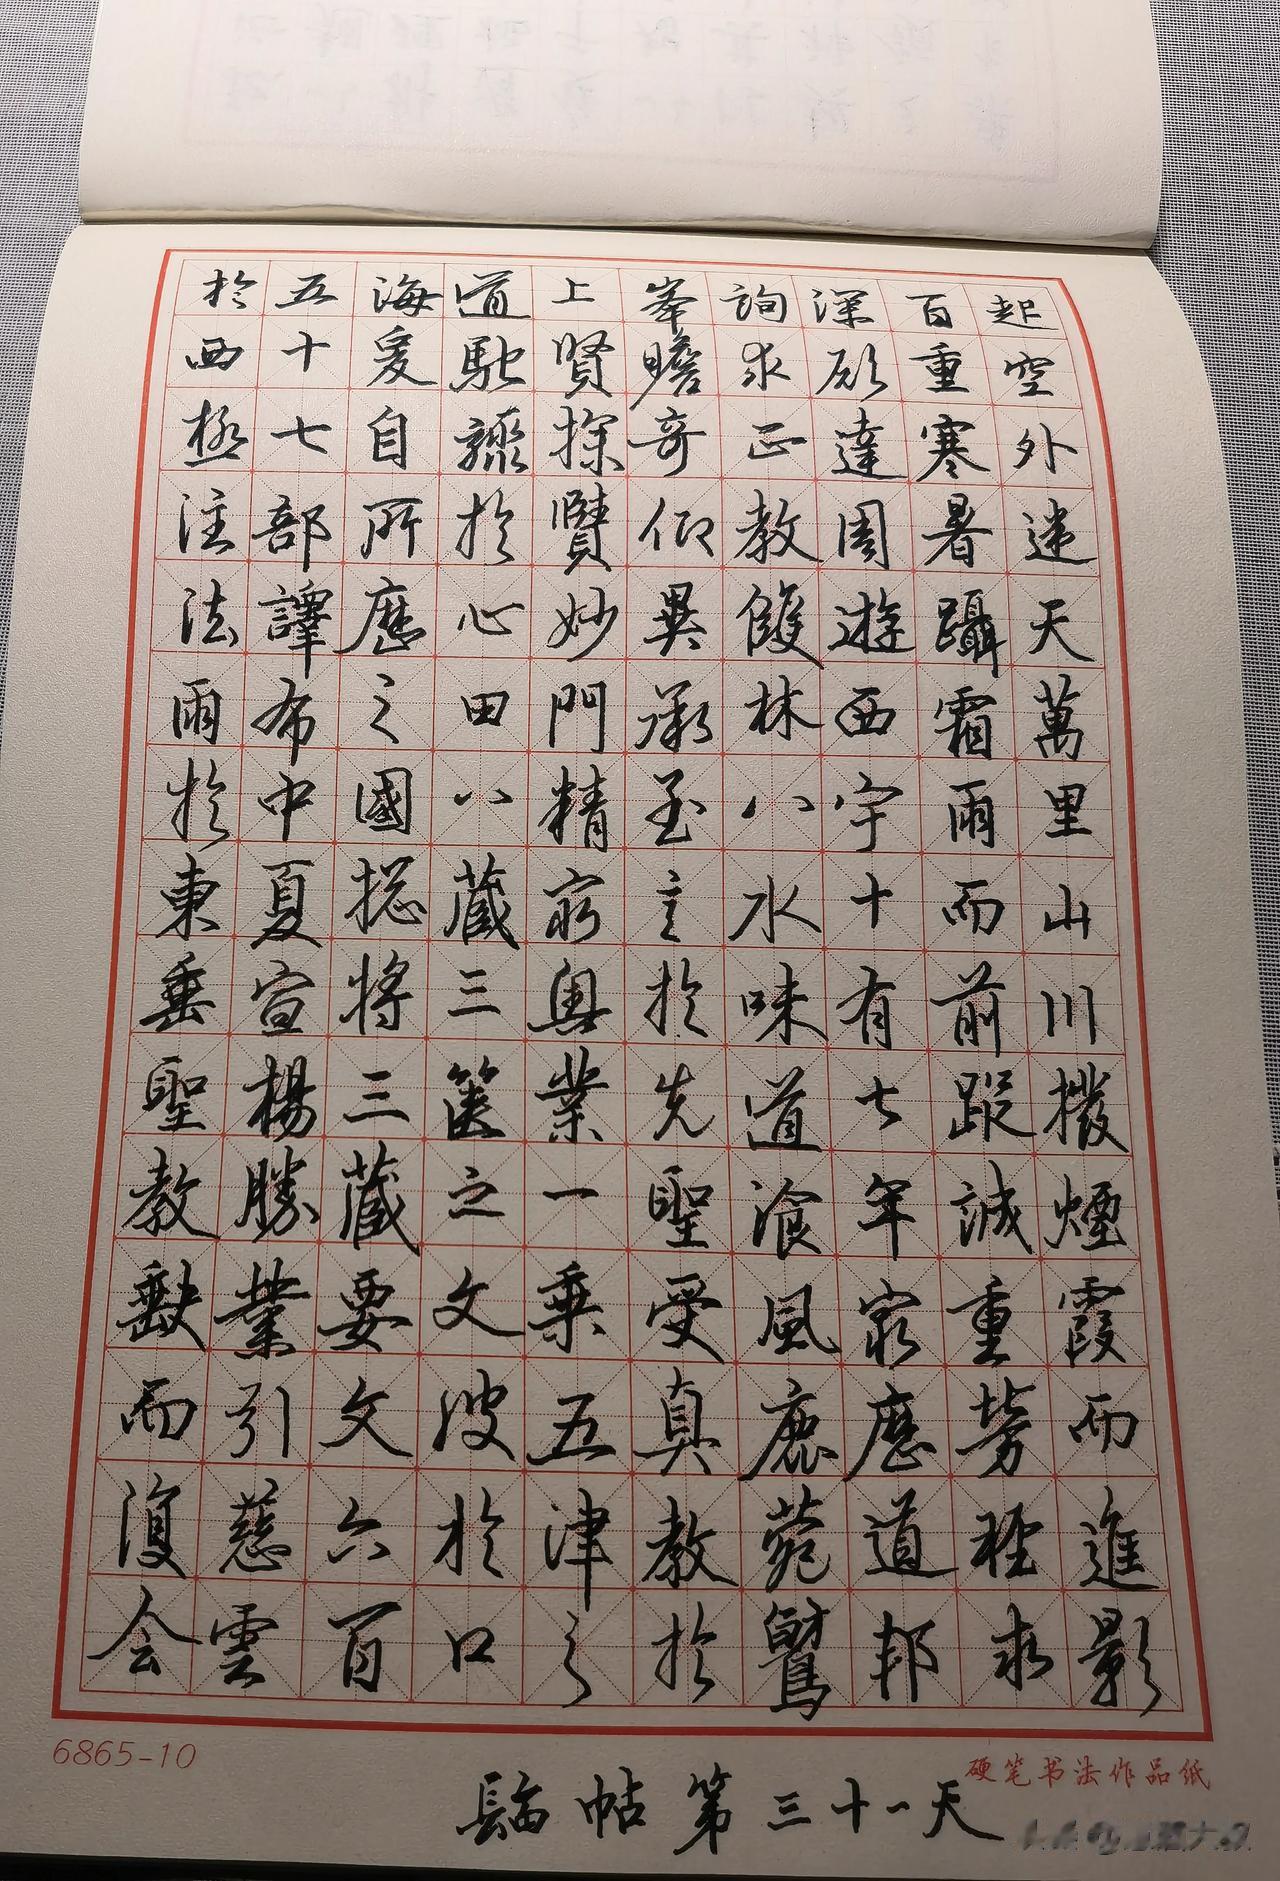 起空外迷天萬里山川撥煙霞而進影
百重寒暑躡霜雨而前蹤誠重勞輕求
深願達周遊西宇十有七年窮歷道邦
詢求正教雙林八水味道湌風鹿菀鷲
峯瞻奇仰異承至言於先聖受真教於
上賢探賾妙門精窮奧業一乘五津之
道馳驟於心田八藏三篋之文波於口
海爰自所歷之國揔將三藏要文六百
五十七部譯布中夏宣楊勝業引慈雲
於西極注法雨於東垂聖教缺而復会
6865-10
硬笔书法作品纸
臨帖第三十一天